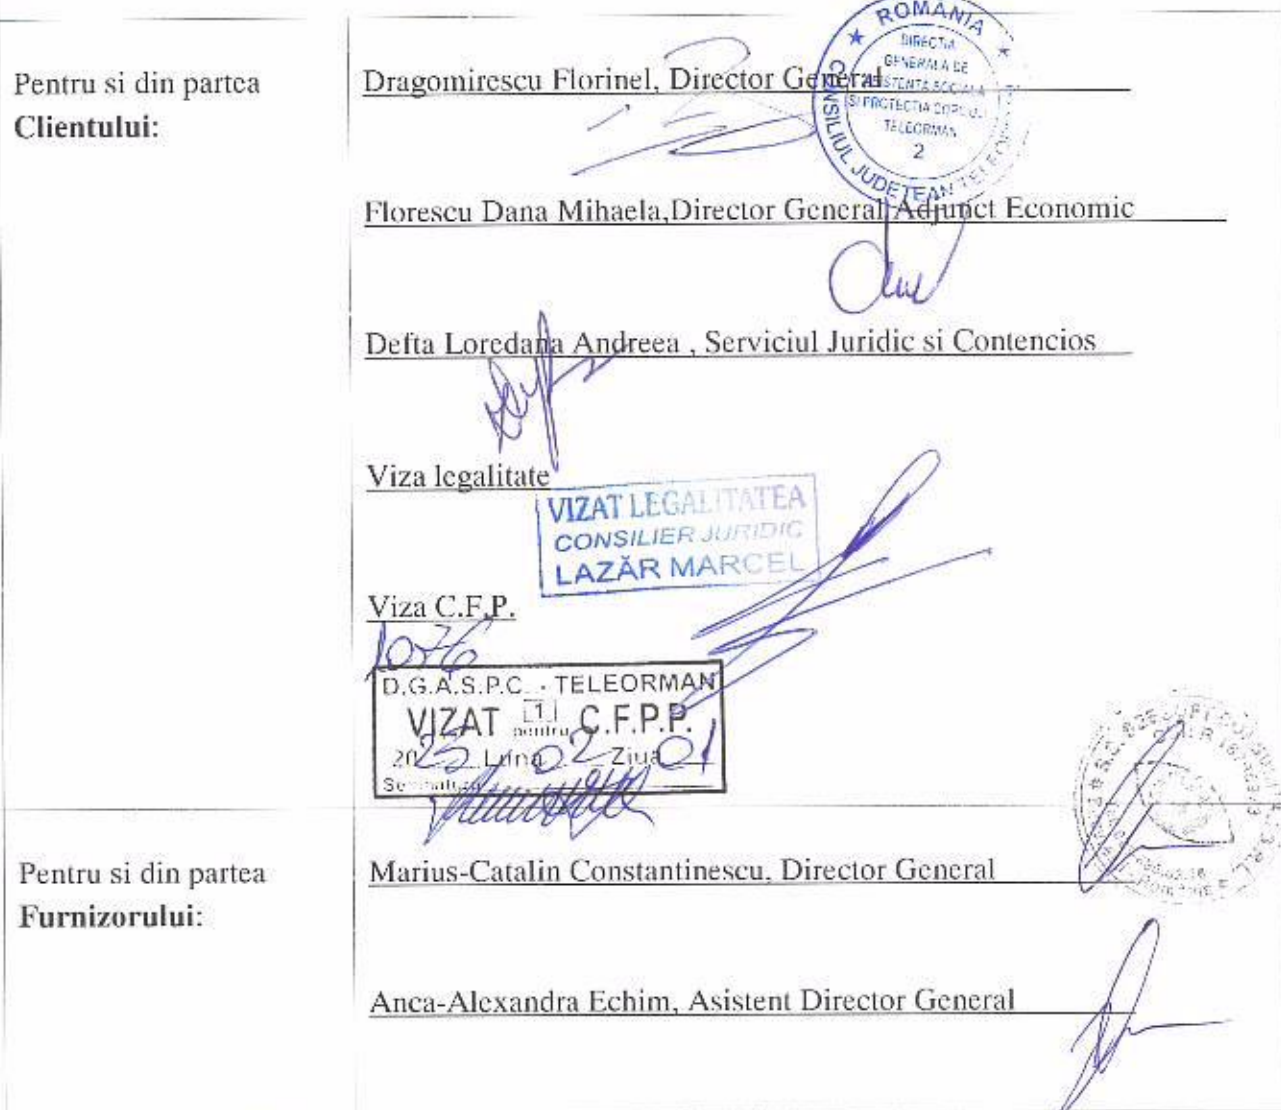 Pentru si din partea
Clientului:
Dragomirescu Florinel, Director General
ROMANIA
DIRECTIA
GENERALA DE
ASISTENTA SOCIALA
SI PROTECTIA COPILULUI
TELEORMAN
2
CONSILIUL JUDETEAN TELEORMAN
Florescu Dana Mihaela,Director General Adjunct Economic
Defta Loredana Andreea , Serviciul Juridic si Contencios
Viza legalitate
VIZAT LEGALITATEA
CONSILIER JURIDIC
LAZĂR MARCEL
Viza C.F.P.
1076
D.G.A.S.P.C. - TELEORMAN
VIZAT 1 pentru C.F.P.P.
2023 Luna 02 Ziua 01
Semnatura
Pentru si din partea
Furnizorului:
Marius-Catalin Constantinescu, Director General
Anca-Alexandra Echim, Asistent Director General